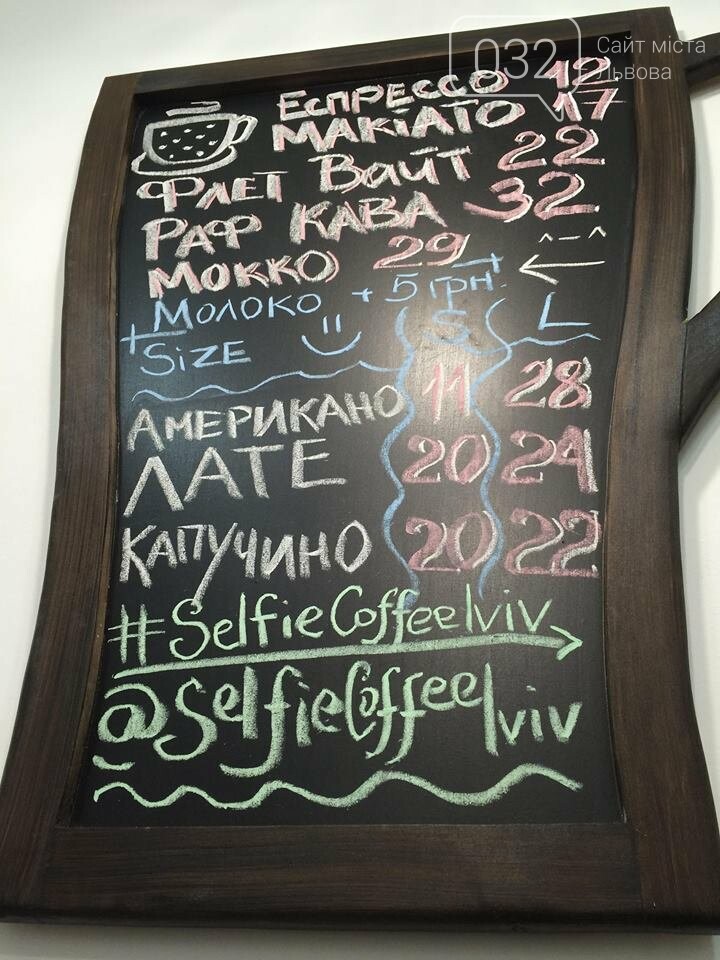 032 Сайт міста Львова
Еспрессо 12
Макіато 17
Флет Вайт 22
Раф Кава 32
Мокко 29 ^-^
+ Молоко + 5 грн.
Size S L
Американо 11 28
Лате 20 24
Капучино 20 22
#SelfieCoffeelviv
@SelfieCoffeelviv